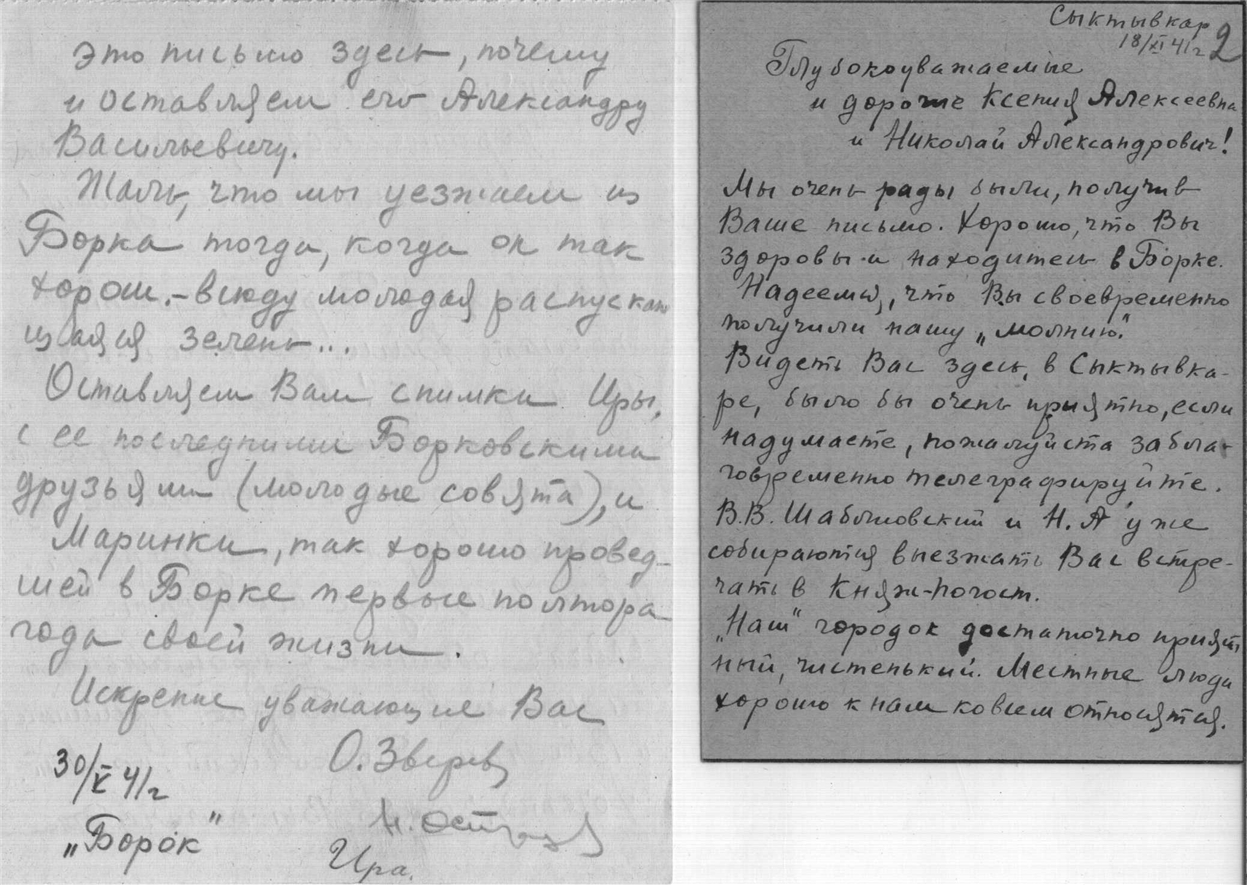 это письмо здесь, почему
и оставляем его Александру
Васильевичу.
Жаль, что мы уезжаем из
Борка тогда, когда он так
хорош. - всюду молодая распускаю
щаяся зелень...
Оставляем Вам снимки Иры,
с ее последними Борковскими
друзьями (молодые совята), и
Маринки, так хорошо провед-
шей в Борке первые полтора
года своей жизни.
Искренне уважающие Вас
О. Зверев
30/X 41г
„Борок"
Ира.
Сыктывкар
18/XI 41г 2
Глубокоуважаемые
и дорогие Ксения Алексеевна
и Николай Александрович!
Мы очень рады были, получив
Ваше письмо. Хорошо, что Вы
здоровы и находитесь в Борке.
Надеемся, что Вы своевременно
получили нашу „молнию".
Видеть Вас здесь, в Сыктывка-
ре, было бы очень приятно, если
надумаете, пожалуйста забла-
говременно телеграфируйте.
В.В. и Н.А уже
собираются выезжать Вас встре-
чать в Княж-погост.
„Наш" городок достаточно прият
ный, чистенький. Местные люди
хорошо к нам ко всем относятся.